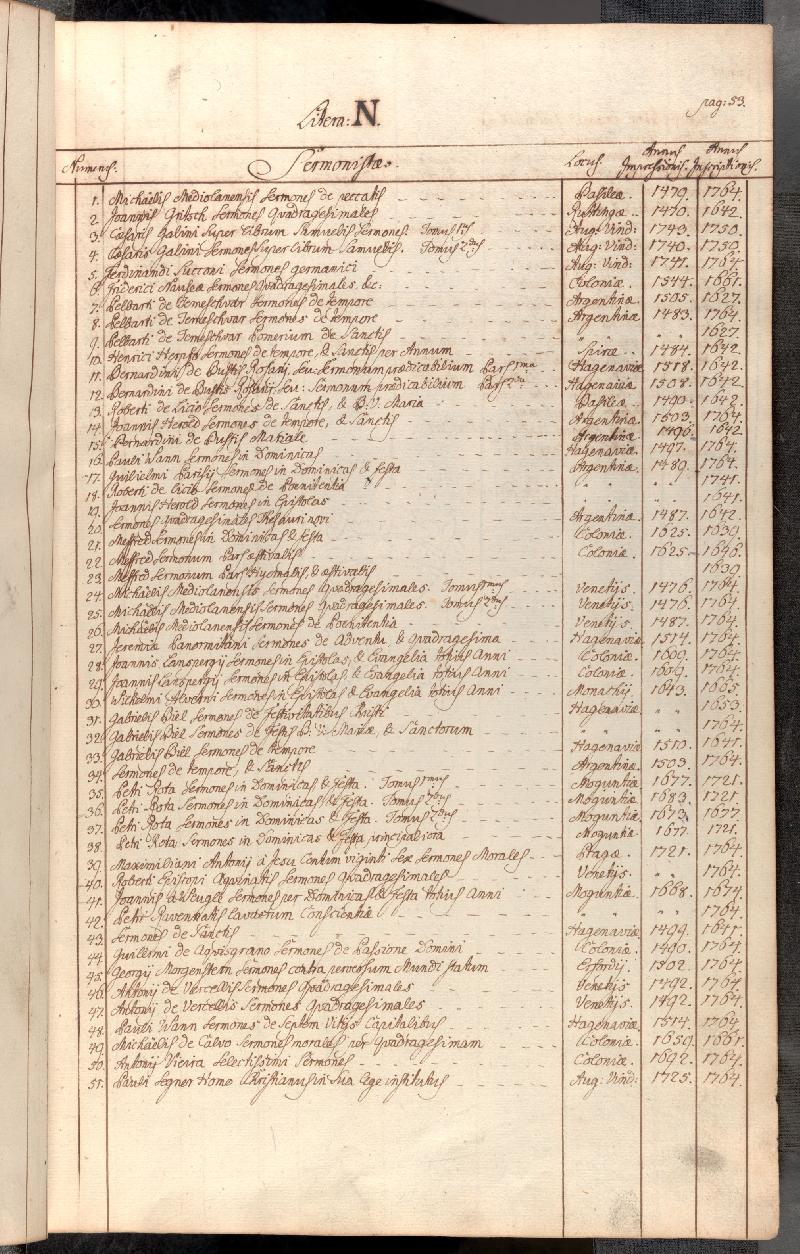 pag: 53.
Litera: N.
Numerus. Sermonistæ. Locus Annus Impressionis. Annus Inscriptionis.
1. Michaëlis Mediolanensis Sermones de peccatis Basileæ. 1479. 1764.
2. Joannis Gritsch Sermones Quadragesimales 1470. 1642.
3. Cæsaris Calini Super Librum Samuelis Sermones. Tomus 1us Aug: Vind: 1743. 1750.
4. Cæsaris Calini Sermones Super Librum Samuelis. Tomus 2dus Aug: Vind: 1740. 1750.
5. Ferdinandi Sermones germanici Aug: Vind: 1741. 1764.
6. Friderici Nauseæ Sermones Quadragesimales &c: Coloniæ. 1544. 1661.
7. Pelbarti de Temeschvar Sermones de tempore Argentinæ 1505. 1627.
8. Pelbarti de Temeschvar Sermones de tempore Argentinæ 1483. 1764.
9. Pelbarti de Temeschvar Pomerium de Sanctis " " 1627.
10. Henrici Herpff Sermones de tempore, & Sanctis per Annum Spiræ 1484. 1642.
11. Bernardini de Bustis Rosarij, seu: Sermonum prædicabilium Pars 1ma Hagenaviæ 1518. 1642.
12. Bernardini de Bustis Rosarij, seu: Sermonum prædicabilium Pars 2da Hagenaviæ 1508. 1642.
13. Roberti de Licio Sermones de Sanctis, & B. V. Maria Basileæ 1490. 1642.
14. Joannis Herold Sermones de tempore, & Sanctis Argentinæ 1503. 1764.
15. Bernardini de Bustis Mariale Argentinæ 1496. 1642.
16. Pauli Wann Sermones in Dominicas Hagenaviæ 1497. 1764.
17. Guilielmi Parisij Sermones in Dominicas & festa Argentinæ 1489. 1764.
18. Roberti de Licio Sermones de Poenitentia " " 1741.
19. Joannis Herold Sermones in Epistolas " " 1641.
20. Sermones Quadragesimales Thesauri novi Argentinæ. 1487. 1642.
21. Meffred Sermones in Dominicas & festa Coloniæ. 1625. 1630.
22. Meffred Sermonum Pars æstivalis Coloniæ 1625. 1646.
23. Meffred Sermonum Pars Hyemalis, & æstivalis 1630
24. Michaëlis Mediolanensis Sermones Quadragesimales. Tomus 1mus Venetijs. 1476. 1764.
25. Michaëlis Mediolanensis Sermones Quadragesimales. Tomus 2dus Venetijs. 1476. 1764.
26. Michaëlis Mediolanensis Sermones de Poenitentia Venetijs. 1487. 1764.
27. Jeremiæ Panormitani Sermones de Adventu & Quadragesima Hagenaviæ 1514. 1764.
28. Joannis Lanspergij Sermones in Epistolas, & Evangelia totius Anni Coloniæ. 1609. 1764.
29. Joannis Lanspergij Sermones in Epistolas, & Evangelia totius Anni Coloniæ. 1609. 1764.
30. Wilhelmi Alverni Sermones in Epistolas & Evangelia totius Anni Monachij. 1643. 1665.
31. Gabrielis Biel Sermones de festivitatibus Christi Hagenaviæ " " 1653.
32. Gabrielis Biel Sermones de festis B. V. Mariæ, & Sanctorum " " 1764.
33. Gabrielis Biel Sermones de tempore Hagenaviæ 1510. 1641.
34. Sermones de tempore, & Sanctis Argentinæ. 1503. 1764.
35. Petri Rota Sermones in Dominicas & Festa. Tomus 1mus Moguntiæ 1677. 1721.
36. Petri Rota Sermones in Dominicas & Festa. Tomus 2dus Moguntiæ 1683. 1721.
37. Petri Rota Sermones in Dominicas & Festa. Tomus 2dus Moguntiæ 1673. 1677.
38. Petri Rota Sermones in Dominicas & Festa principaliora Moguntiæ 1677. 1721.
39. Maximiliani Antonij à Jesu Centum viginti sex Sermones Morales Pragæ. 1721. 1764.
40. Roberti Episcopi Aquinatis Sermones Quadragesimales Venetijs. " " 1764.
41. Joannis à Sermones per Dominicas & Festa totius Anni Moguntiæ 1668. 1674.
42. Petri Ravennatis Conscientiæ " " 1764.
43. Sermones de Sanctis Hagenaviæ 1499. 1641.
44. Guillermi de Aquisgrano Sermones de Passione Domini Coloniæ. 1490. 1764.
45. Georgij Morgenstern Sermones contra perversum Mundi statum Erfordij. 1502. 1764.
46. Antonij de Vercellis Sermones Quadragesimales Venetijs 1492. 1764.
47. Antonij de Vercellis Sermones Quadragesimales Venetijs. 1492. 1764.
48. Pauli Wann Sermones de Septem Vitijs Capitalibus Hagenaviæ 1514. 1764.
49. Michaëlis de Calvo Sermones morales per Quadragesimam Coloniæ. 1659. 1661.
50. Antonij Vieira Selectissimi Sermones Coloniæ. 1692. 1764.
51. Pauli Segner Homo Christianus in Sua Lege institutus Aug: Vind: 1725. 1764.